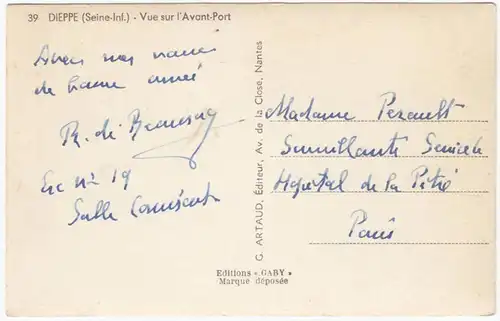 39 DIEPPE (Seine-Inf.) - Vue sur l'Avant-Port
Avec nos vœux
de bonne année
R. de Beaurs
Esc nº 19
Salle
G. ARTAUD, Éditeur, Av. de la Close, Nantes
Madame Perault
Surveillante Générale
Hôpital de la Pitié
Paris
Editions « GABY »
Marque déposée